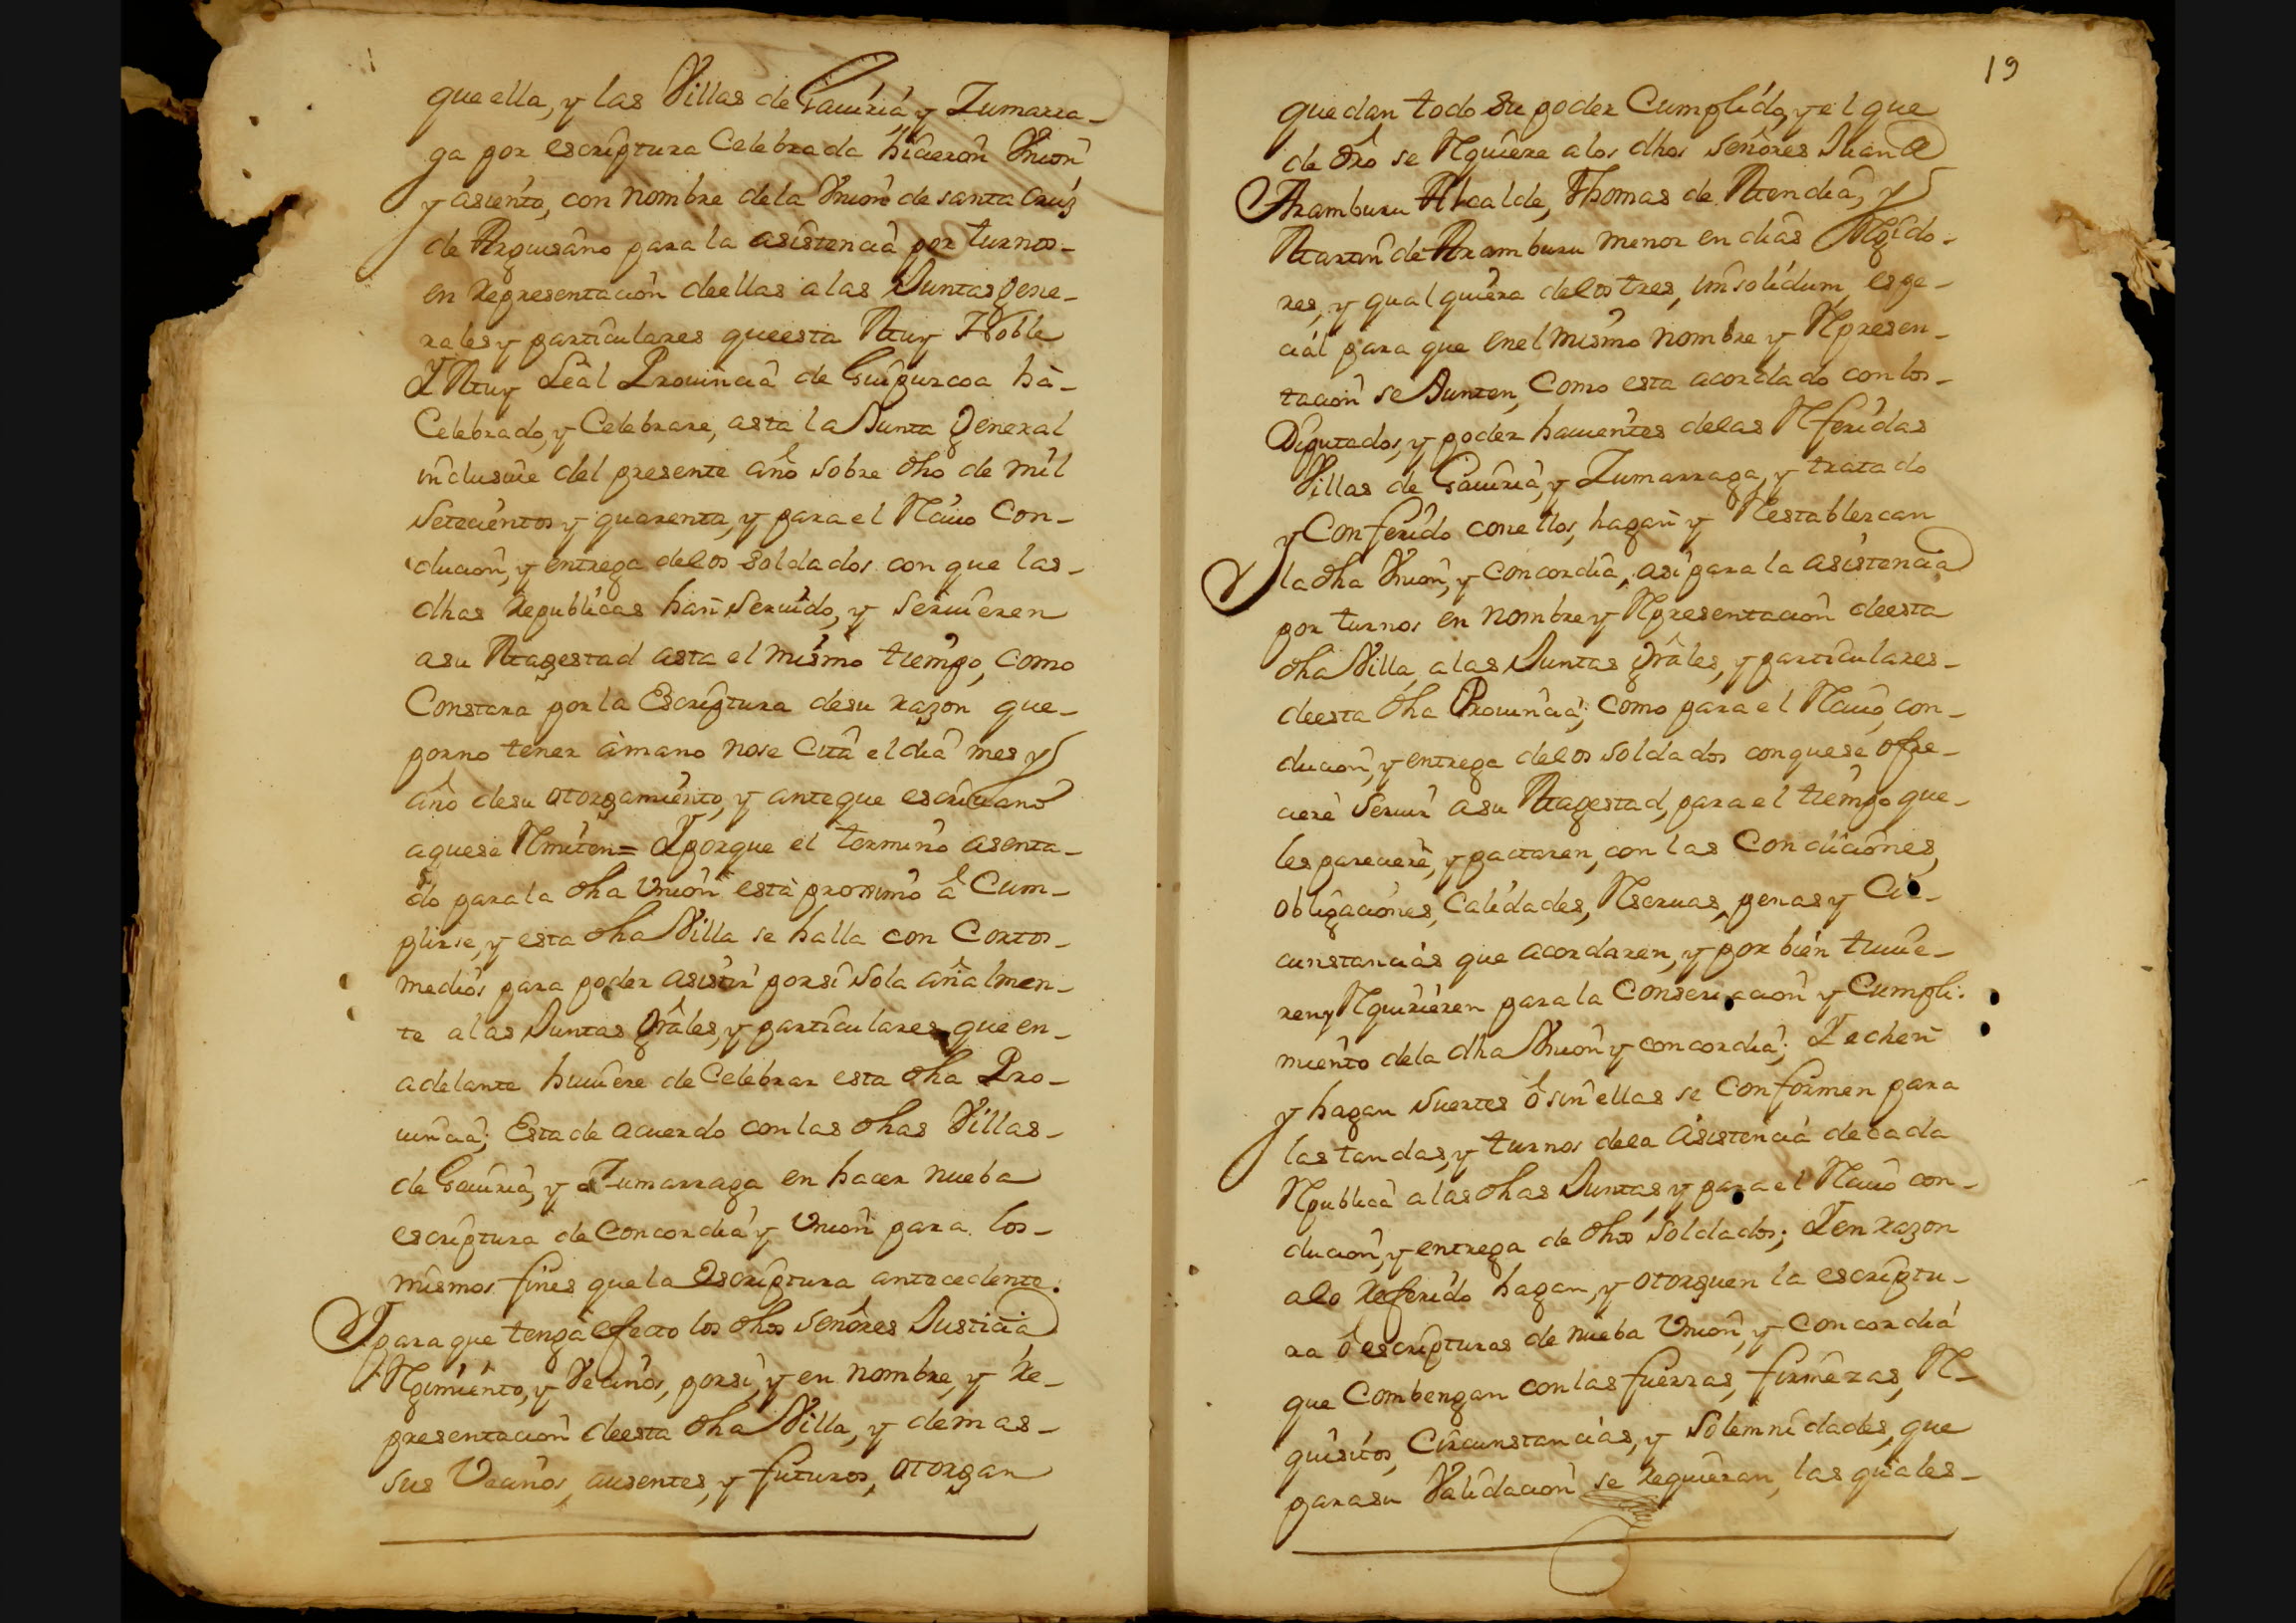 que ella, y las Villas de Gauiria y Zumarra-
ga por escriptura Celebrada hicieron Vnion
y asiento, con nombre de la Vnion de santa Cruz
de Arguisano para la asistencia por turnos-
en representacion de ellas a las Juntas Gene-
rales y particulares que esta Muy Noble
Y Muy Leal Prouincia de Guipuzcoa hà-
Celebrado, y Celebrare, asta la Junta General
inclusiue del presente año sobre dho de mil
Setecientos y quarenta, y para el Reciuo Con-
ducion, y entrega de los Soldados con que las-
dhas Republicas han seruido, y siruieren
a su Magestad asta el mismo tiempo, como
Constara por la Escriptura de su razon que-
por no tener à mano no se Cita el dia mes y
año de su otorgamiento, y ante que escriuano
a que se Remiten = Y porque el termino asenta-
do para la dha Vnion està proximo à Cum-
plirse, y esta dha Villa se halla con Cortos-
medios para poder asistir por si sola añalmen-
te a las Juntas Grâles, y particulares que en-
adelante huuiere de Celebrar esta dha Pro-
uincia; Esta de acuerdo con las dhas Villas-
de Gauiria, y Zumarraga en hacer nueba
escriptura de Concordia y Vnion para los-
mismos fines que la Escriptura antecedente.
Y para que tenga efecto los dhos Señores Justicia
Regimiento, y Vecinos, por si, y en nombre, y re-
presentacion de esta dha Villa, y demas-
sus Vecinos, ausentes, y futuros, otorgan
19
que dan todo su poder Cumplido, y el que
de dro se Requiere a los dhos Señores Juan de
Aramburu Alcalde, Thomas de Mendia, y
Martin de Aramburu menor en dias Regido-
res, y qualquiera de los tres, insolidum, espe-
cial para que en el mismo nombre y Represen-
tacion se Junten, Como esta acordado con los-
Diputados, y poder hauientes de las Referidas
Villas de Gauiria, y Zumarraga, y tratado
y Conferido con ellos, hagan y Restablezcan
la dha Vnion, y concordia, asi para la asistencia
por turnos en nombre y Representacion de esta
dha Villa, a las Juntas Grâles, y particulares-
de esta dha Prouincia; Como para el Reciuo, con-
ducion, y entrega de los Soldados con que se ofre-
ciere Seruir a su Magestad, para el tiempo que-
les pareciere, y pactaren, con las Condiciones,
obligaciones, Calidades, Reseruas, penas y Cir-
cunstancias que acordaren, y por bien tuuie-
ren y Requirieren para la Conseruacion y Cumpli-
miento de la dha Vnion y concordia; Y echen
y hagan Suertes ò sin ellas se Conformen para
las tandas, y turnos de la asistencia de cada
Republica a las dhas Juntas, y para el Reciuo con-
ducion, y entrega de dhos Soldados; Y en razon
a lo referido hagan, y otorguen la escriptu-
ra ò escripturas de nueba Vnion, y Concordia
que Combengan con las fuerzas, firmezas, Re-
quisitos, Circunstancias, y Solemnidades, que
para su Validacion se requieran, las quales-